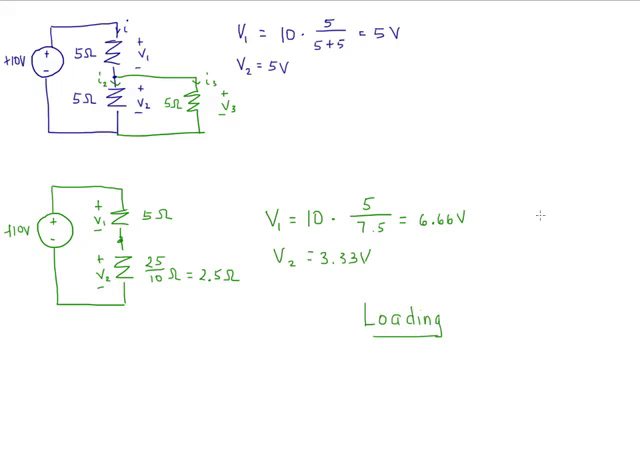 i
+
+10V
+
5Ω
V₁
-
-
i₂
i₃
+
+
5Ω
V₂
5Ω
V₃
-
-
V₁ = 10 · 5/(5+5) = 5V
V₂ = 5V
+
V₁
5Ω
-
+10V
+
-
+
V₂
25/10 Ω = 2.5Ω
-
V₁ = 10 · 5/7.5 = 6.66V
V₂ = 3.33V
Loading